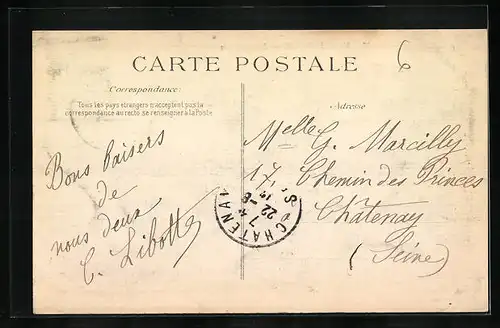 CARTE POSTALE
6
Correspondance:
Tous les pays étrangers n'acceptent pas la
correspondance au recto se renseigner à la Poste
Adresse
Bons baisers
de
nous deux
C. Libotte
Melle G. Marcilly
17, Chemin des Princes
Châtenay
(Seine)
CHATENAY
22-8